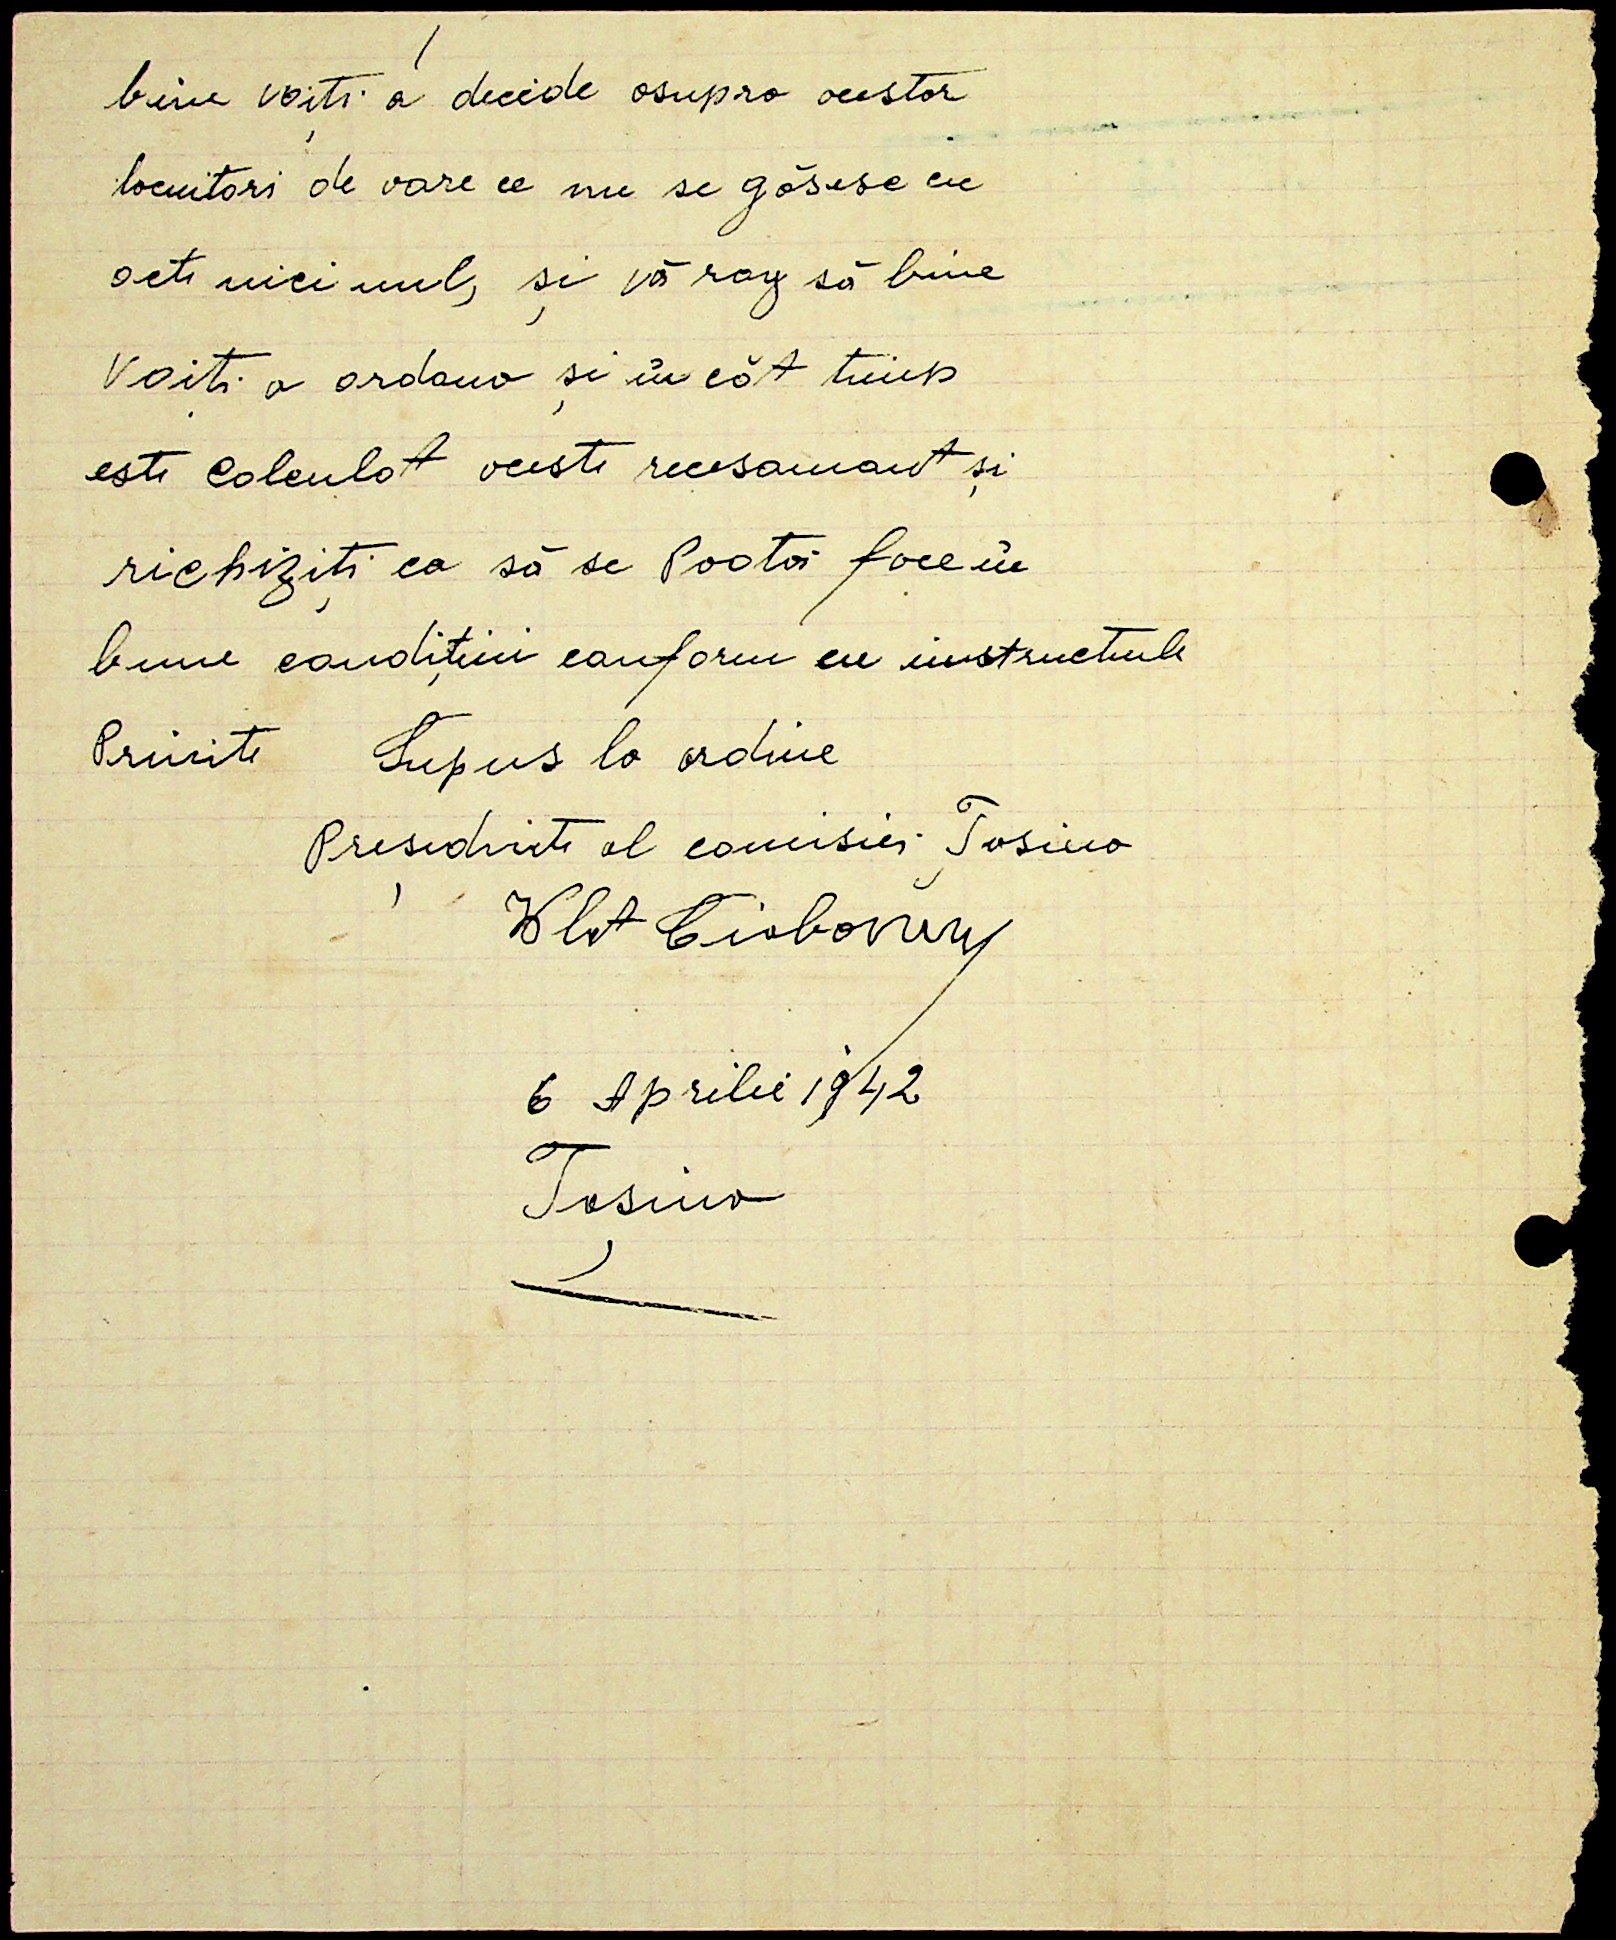 bine voiți a decide asupra acestor
locuitori de oare ce nu se găsesc cu
acte nici unul, și vă rog să bine
Voiți a ordona și în căt timp
este Calculat aceste recesamant și
richiziți ca să se Poată face în
bune condițiuni conform cu instructiule
Primite Supus la ordine
Presedinte al comisiei Tasino
6 Aprilie 1942
Tasino